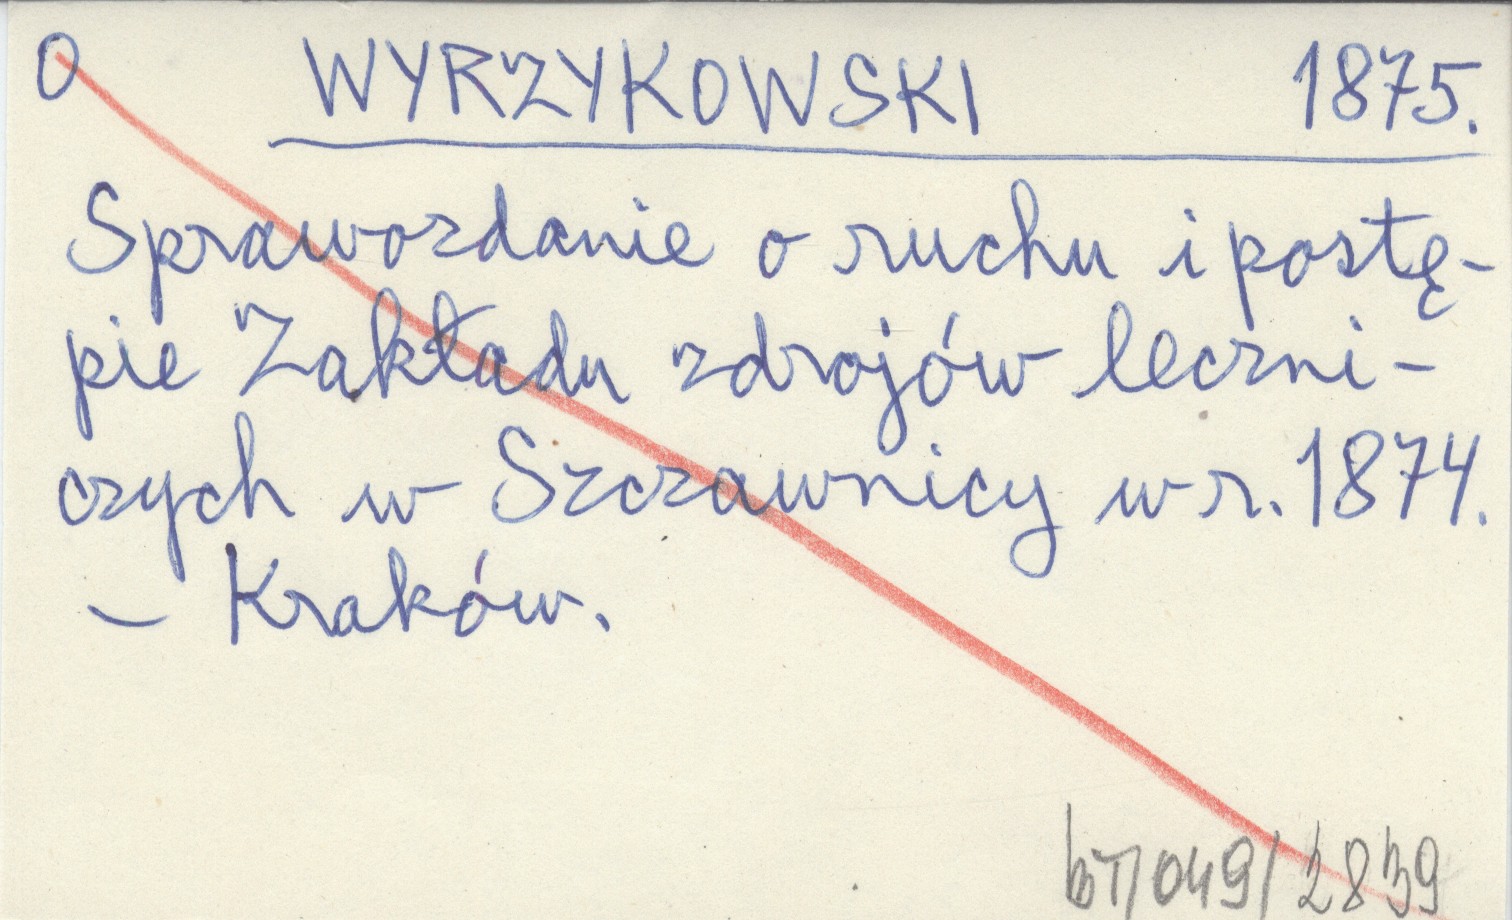 O WYRZYKOWSKI 1875.
Sprawozdanie o ruchu i postę-
pie Zakładu zdrojów leczni-
czych w Szczawnicy w r. 1874.
- Kraków.
BT/049/2839